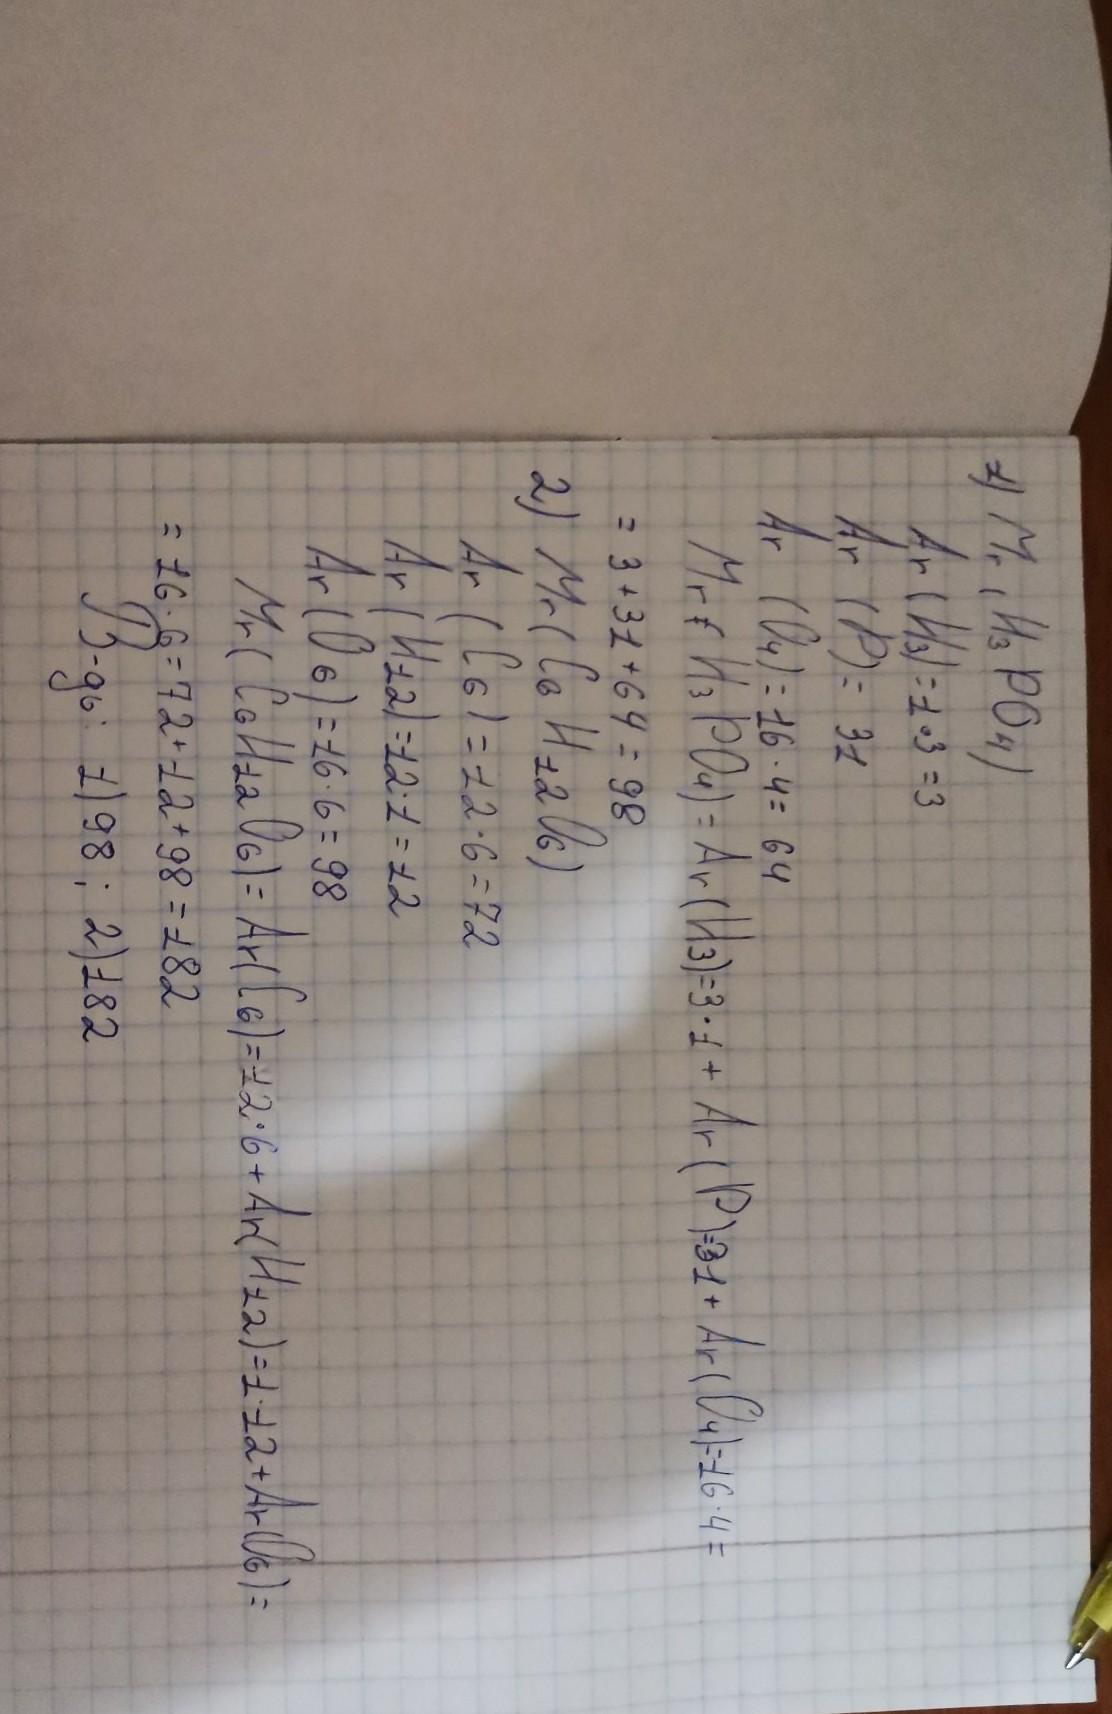 1) Mr (H3PO4)
Ar (H3) = 1·3 = 3
Ar (P) = 31
Ar (O4) = 16·4 = 64
Mr ( H3PO4) = Ar (H3) = 3·1 + Ar (P) = 31 + Ar (O4) = 16·4 =
= 3 + 31 + 64 = 98
2) Mr (C6H12O6)
Ar (C6) = 12·6 = 72
Ar (H12) = 12·1 = 12
Ar (O6) = 16·6 = 98
Mr (C6H12O6) = Ar (C6) = 12·6 + Ar (H12) = 1·12 + Ar (O6) =
= 16·6 = 72 + 12 + 98 = 182
1) 98 ; 2) 182